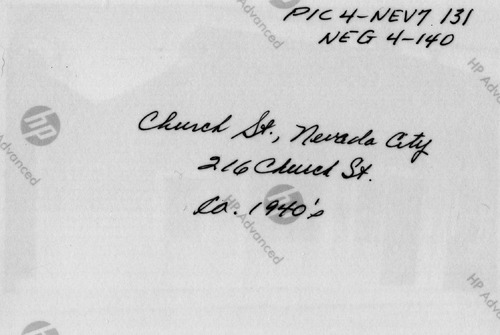 PIC 4-NEV7 131
NEG 4-140
Church St., Nevada City
216 Church St.
Ca. 1940's
hp
HP Advanced
HP Advanced
HP Advanced
HP Advanced
HP Advanced